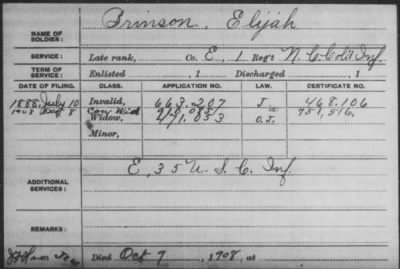 Brinson, Elijah
NAME OF SOLDIER:
SERVICE: Late rank, Co. E, 1 Reg't N.C. Col'd Inf.
TERM OF SERVICE: Enlisted , 1 Discharged , 1
DATE OF FILING. CLASS. APPLICATION NO. LAW. CERTIFICATE NO.
1888, July 10 Invalid, 663.207 J. 468.106
1908 Con Wid 751,516.
Widow, O.J.
Minor,
E, 35 U.S.C. Inf.
ADDITIONAL SERVICES:
REMARKS:
Died Oct 7, 1908, at